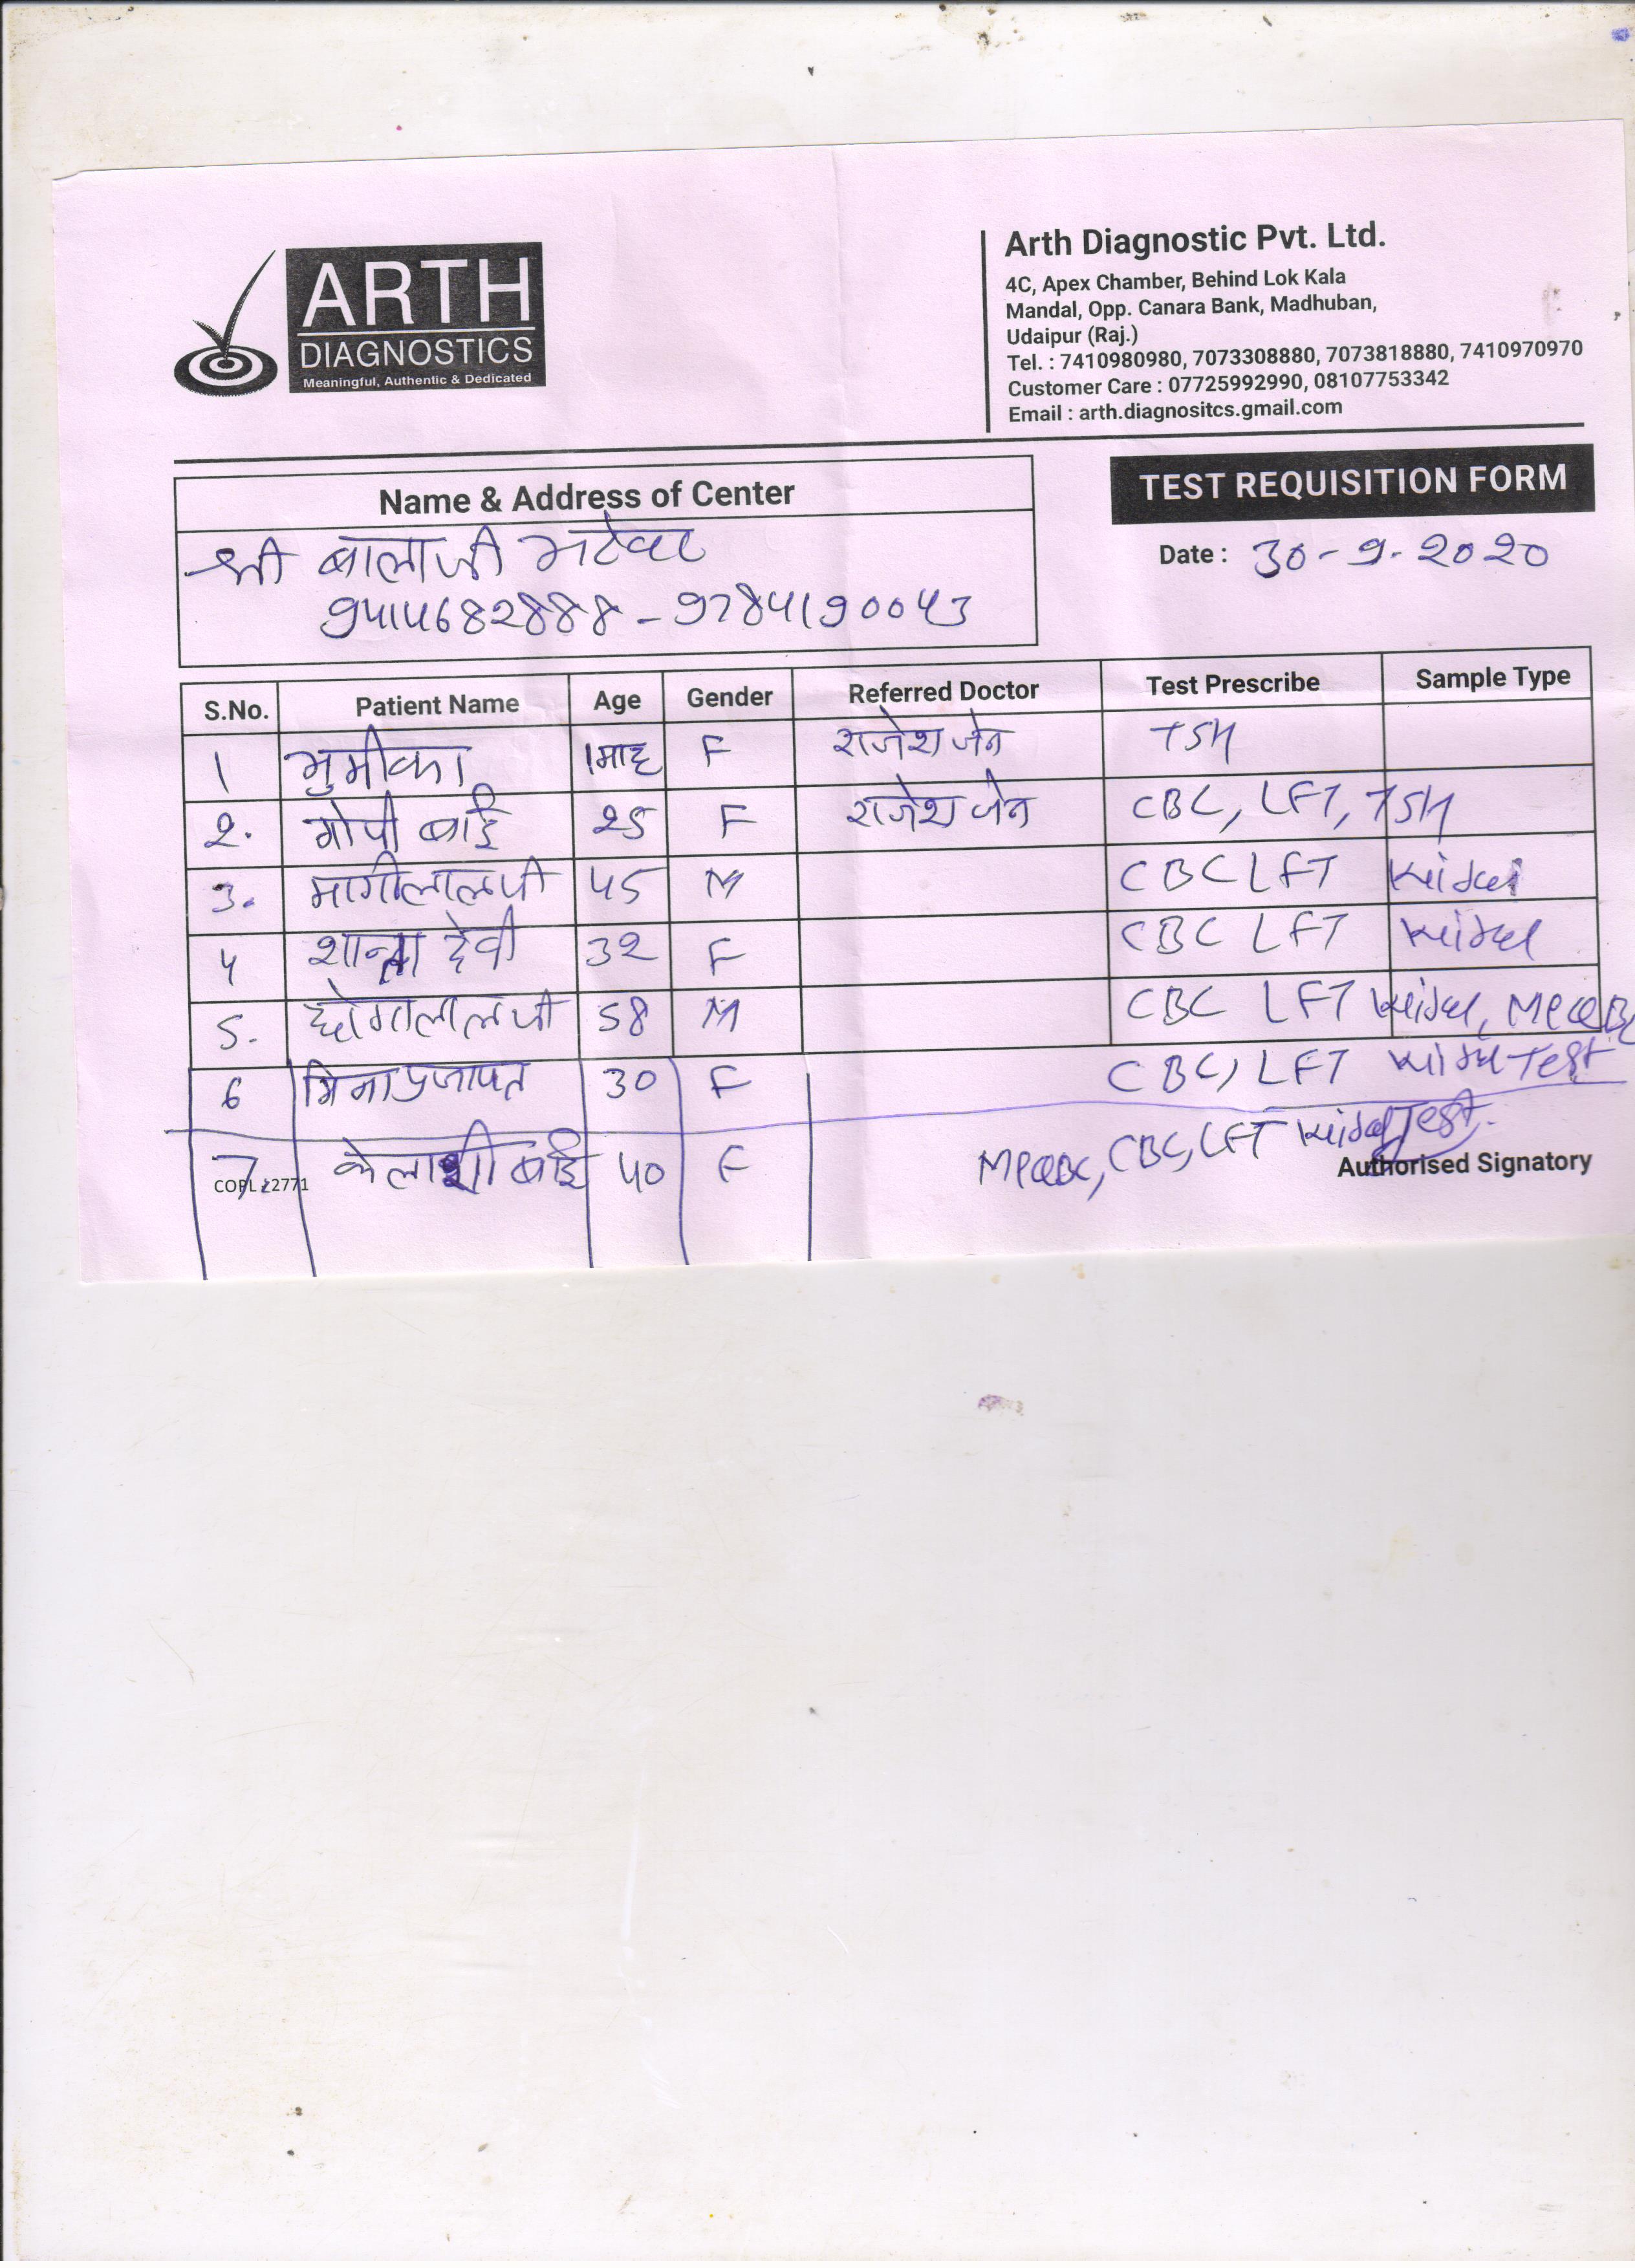 ARTH
DIAGNOSTICS
Meaningful, Authentic & Dedicated
Arth Diagnostic Pvt. Ltd.
4C, Apex Chamber, Behind Lok Kala
Mandal, Opp. Canara Bank, Madhuban,
Udaipur (Raj.)
Tel. : 7410980980, 7073308880, 7073818880, 7410970970
Customer Care : 07725992990, 08107753342
Email : arth.diagnositcs.gmail.com
Name & Address of Center
TEST REQUISITION FORM
श्री बालाजी भटेवर
9414682888 - 9784190043
Date : 30-9-2020
S.No. Patient Name Age Gender Referred Doctor Test Prescribe Sample Type
1 भुमीका 1माह F राजेश जेन TSH
2. गोपी बाई 25 F राजेश जेन CBC, LFT, TSH
3. मागीलालजी 45 M CBC LFT
4 शान्ता देवी 32 F CBC LFT
5. छोगालालजी 58 M CBC LFT
6 मिना प्रजापत 30 F CBC, LFT Test
7. केलाशी बाई 40 F CBC, LFT Test.
Authorised Signatory